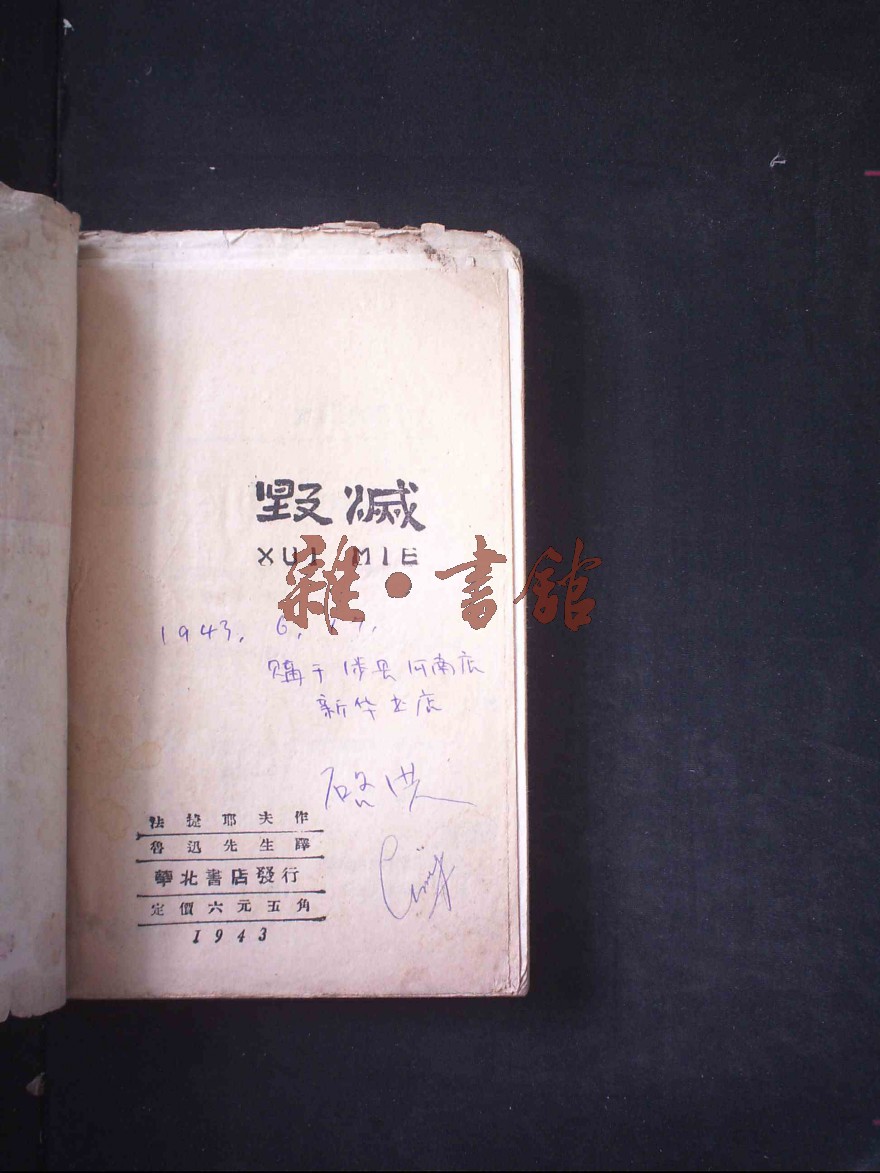 毀滅
XUI MIE
雜·書館
1943. 6.
購于涉县河南店
新华书店
啓洪
法捷耶夫作
魯迅先生譯
華北書店發行
定價六元五角
1943